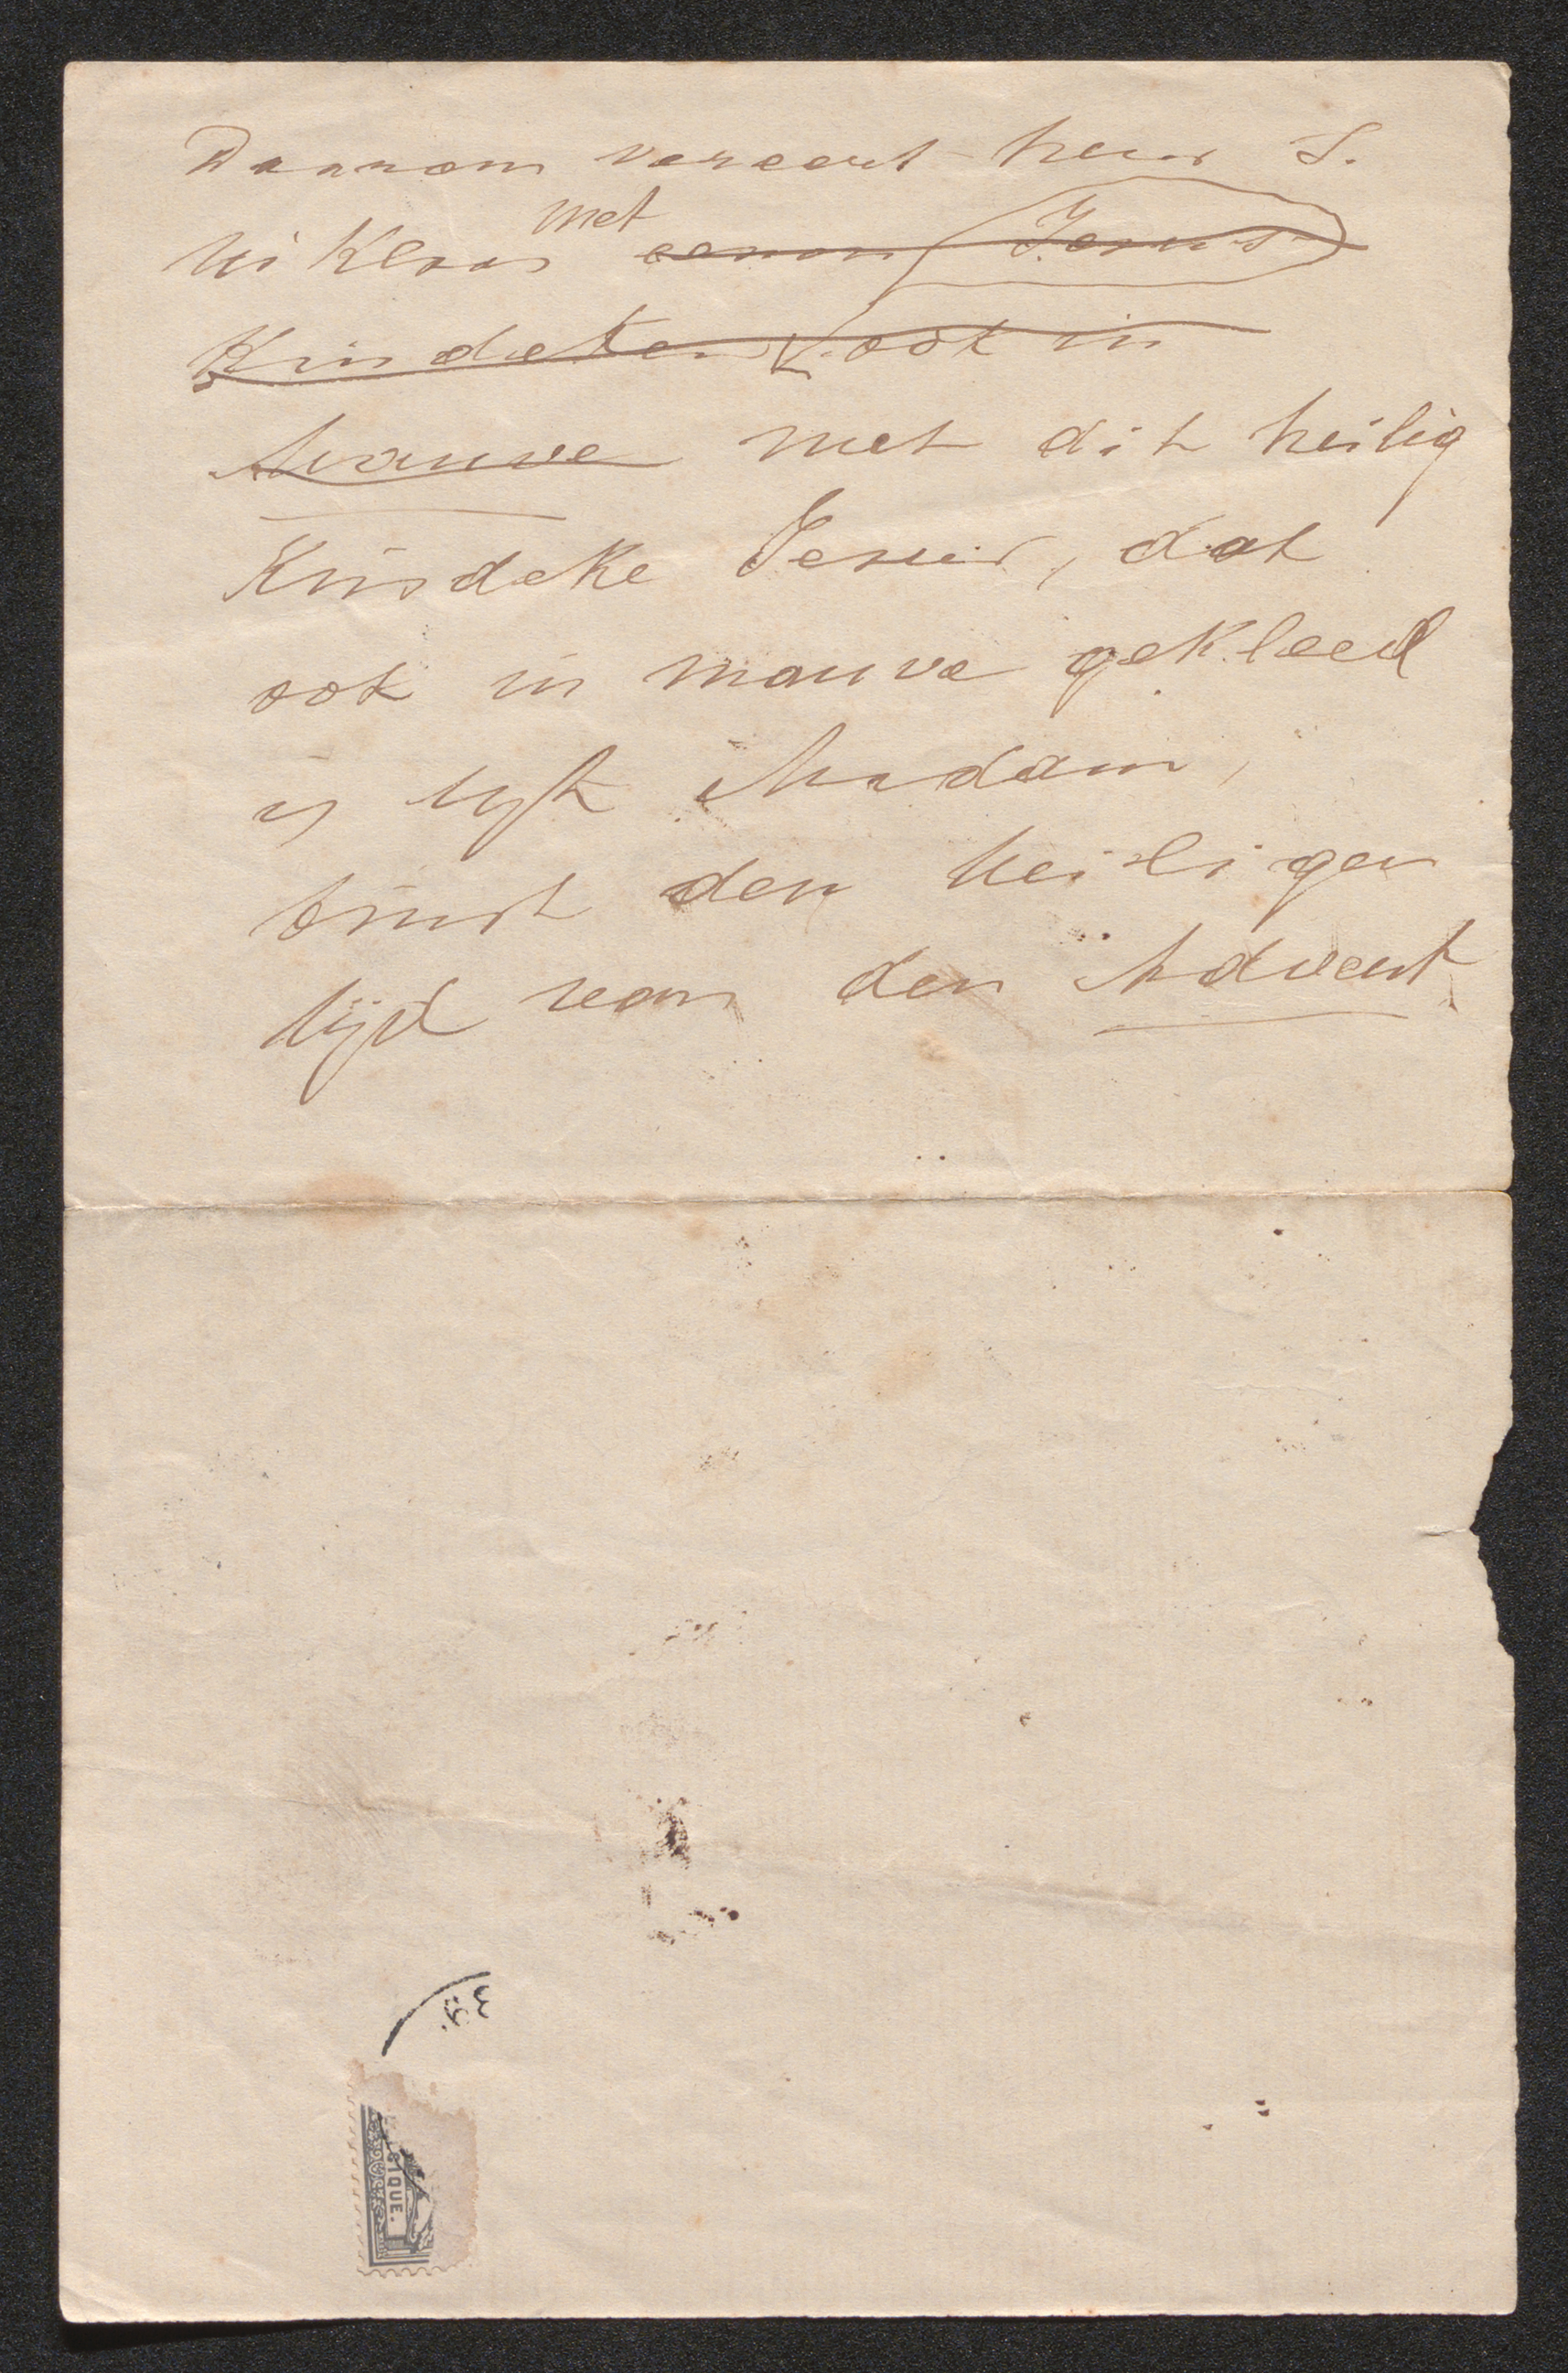 Daarom vereert heur S.
Niklaas met eenen Jesus
Kindeken ook in
Mauve met dit heilig
Kindeke Jesus, dat
ook in mauve gekleed
is lijk Madam,
binst den heiligen
tijd van den Advent
GIQUE.